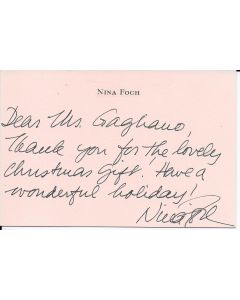 NINA FOCH
Dear Ms. Gagliano,
Thank you for the lovely
Christmas gift. Have a
wonderful holiday!
Nina Foch